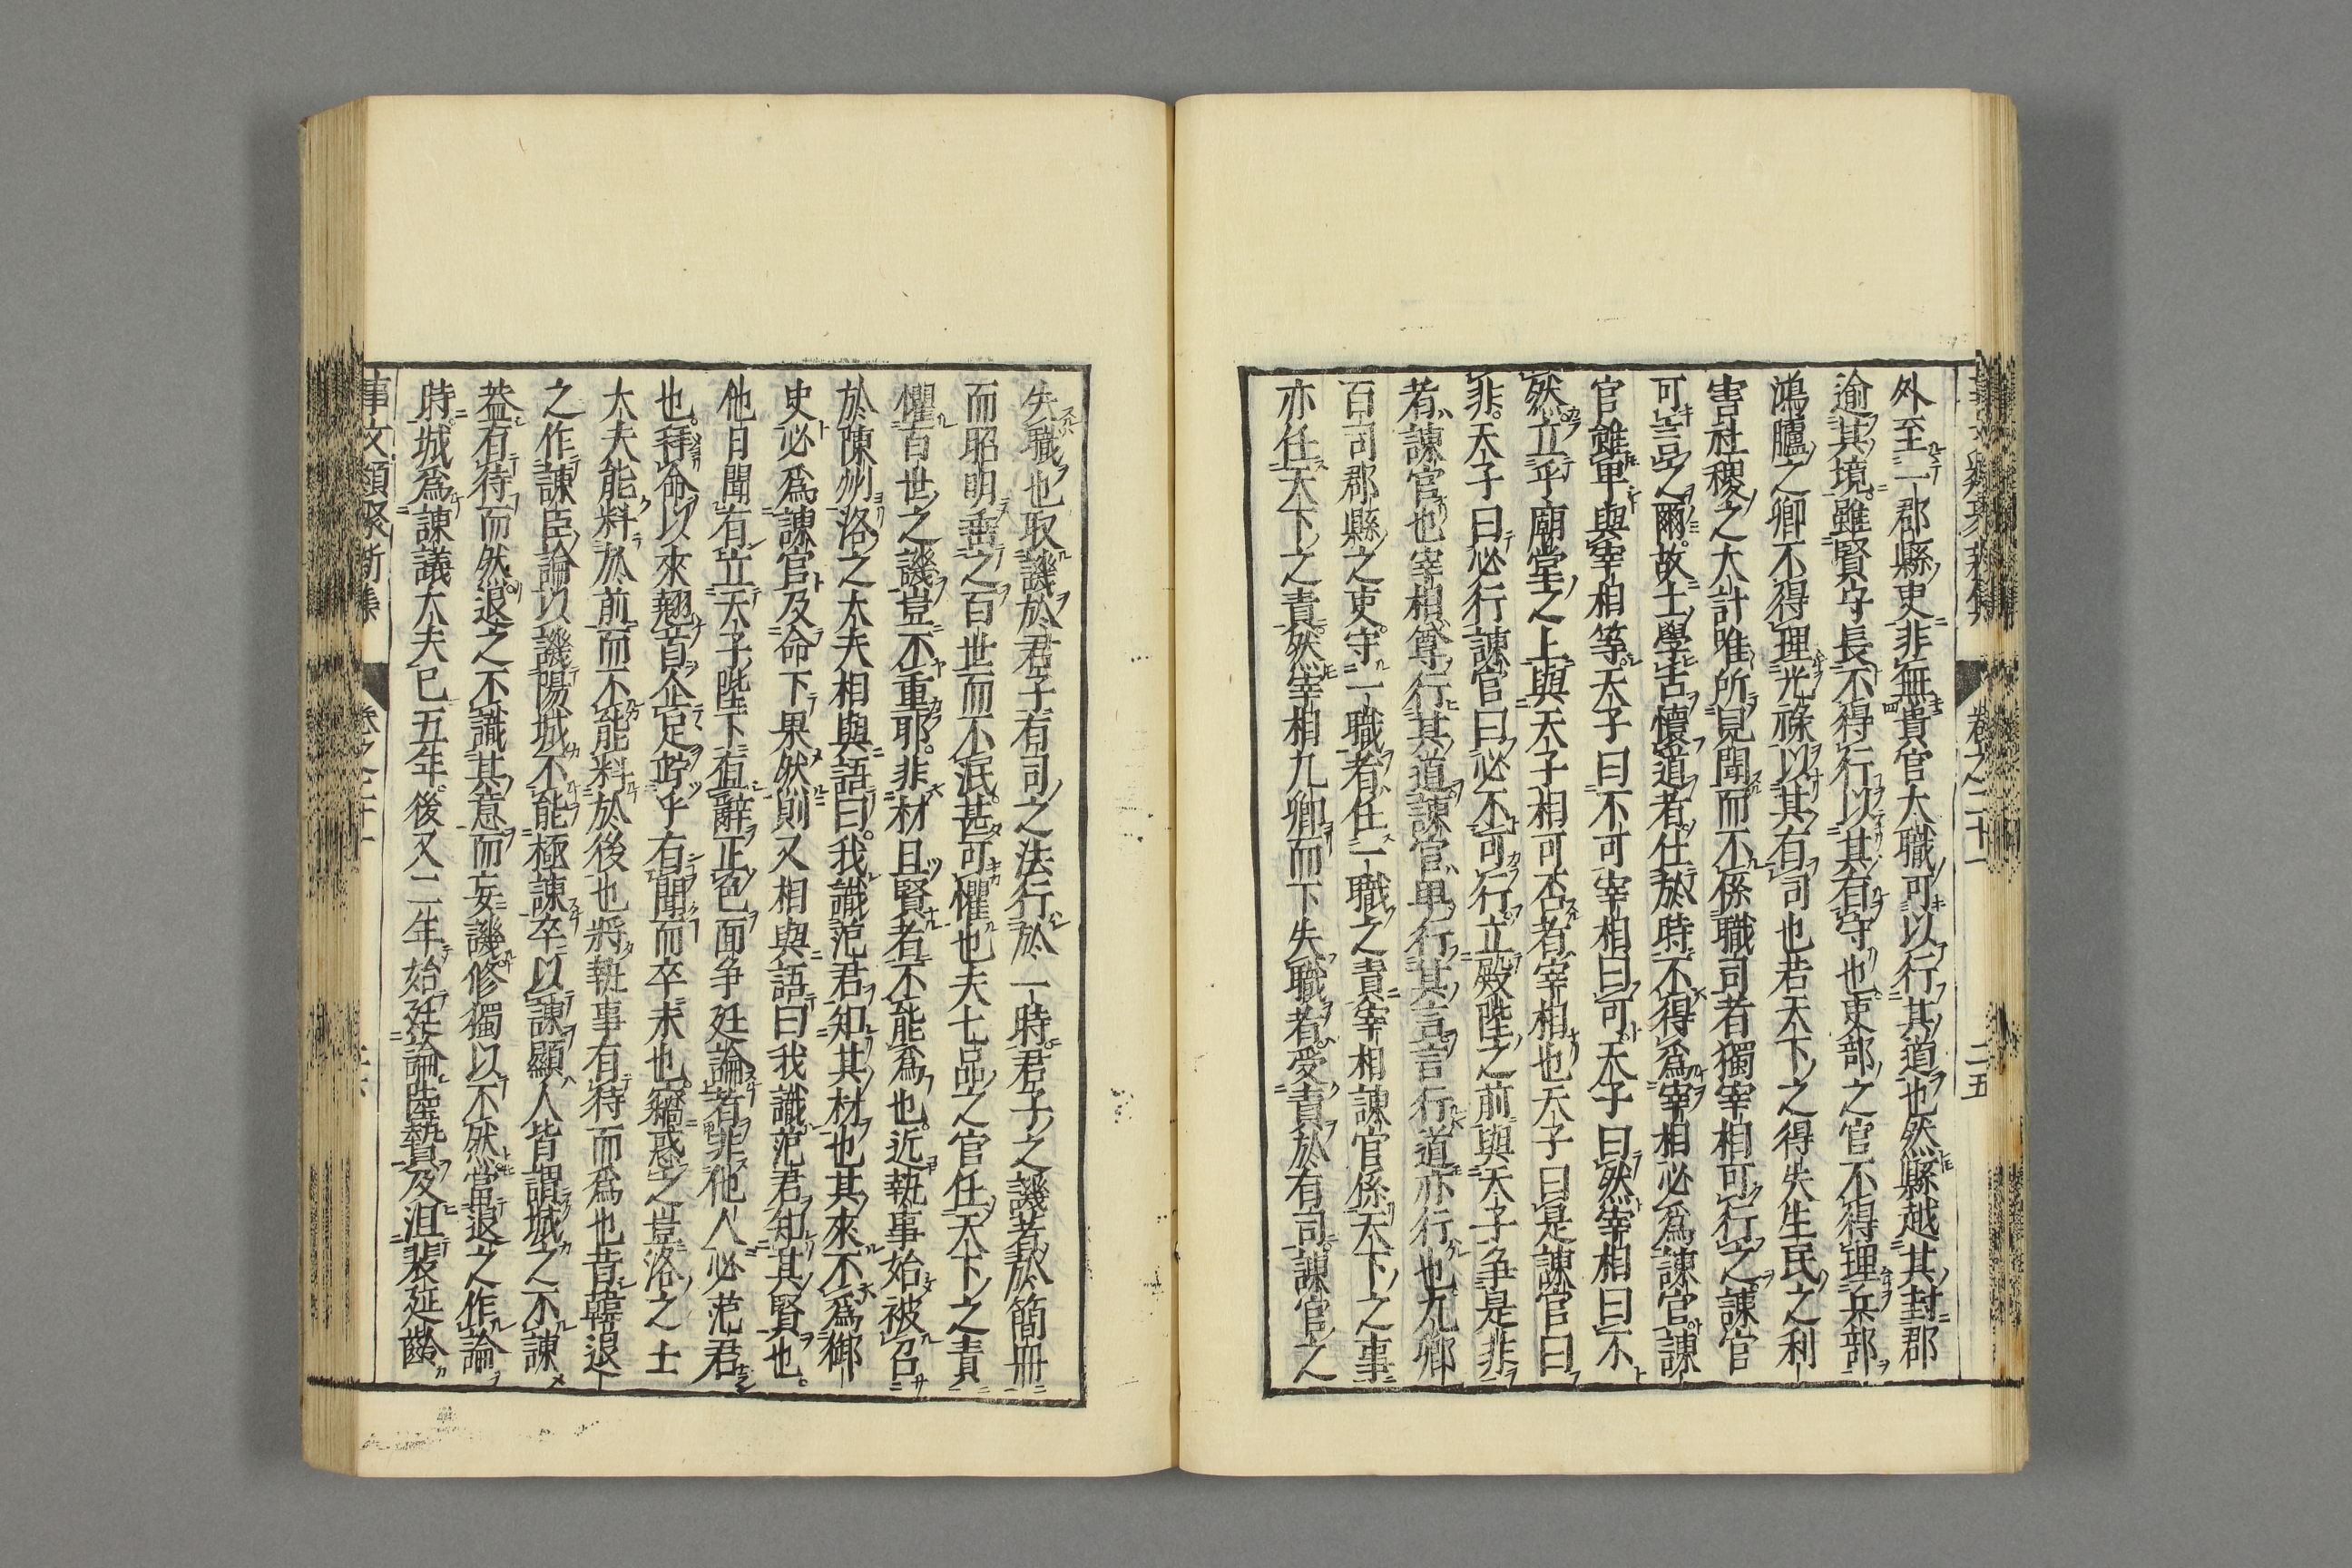 外至一郡縣吏非無貴官大職可以行其道也然縣越其封郡
逾其境雖賢守長不得行以其有守也吏部之官不得理兵部
鴻臚之卿不得理光祿以其有司也若天下之得失生民之利
害社稷之大計唯所見聞而不係職司者獨宰相可行之諫官
可言之爾故士學古懷道者仕於時不得為宰相必為諫官諫
官雖卑與宰相等天子曰不可宰相曰可天子曰然宰相曰不
然立乎廟堂之上與天子相可否者宰相也天子曰是諫官曰
非天子曰必行諫官曰必不可行立殿陛之前與天子争是非
者諫官也宰相尊行其道諫官卑行其言言行道亦行也九卿
百司郡縣之吏守一職者任一職之責宰相諫官係天下之事
亦任天下之責然宰相九卿而下失職者受責於有司諫官之
失職也取譏於君子有司之法行於一時君子之譏著於簡冊
而昭明垂之百世而不泯甚可懼也夫七品之官任天下之責
懼百世之譏豈不重耶非材且賢者不能為也近執事始被召
於陳州洛之大夫相與語曰我識范君知其材也其來不為御
史必為諫官及命下果然則又相與語曰我識范君知其賢也。
他日聞有立天子陛下直辭正色面争廷論者非他人必范君
也拜命以來翹首企足竚乎有聞而卒未也竊惑之豈洛之士
大夫能料於前而不能料於後也將執事有待而為也昔韓退
之作諫臣論以譏陽城不能極諫卒以諫顯人皆謂城之不諫
葢有待而然退之不識其意而妄譏修獨以不然當退之作論
時城為諫議大夫已五年後又二年始廷論陸贄及沮裴延齡
事文類聚新集 卷之二十一